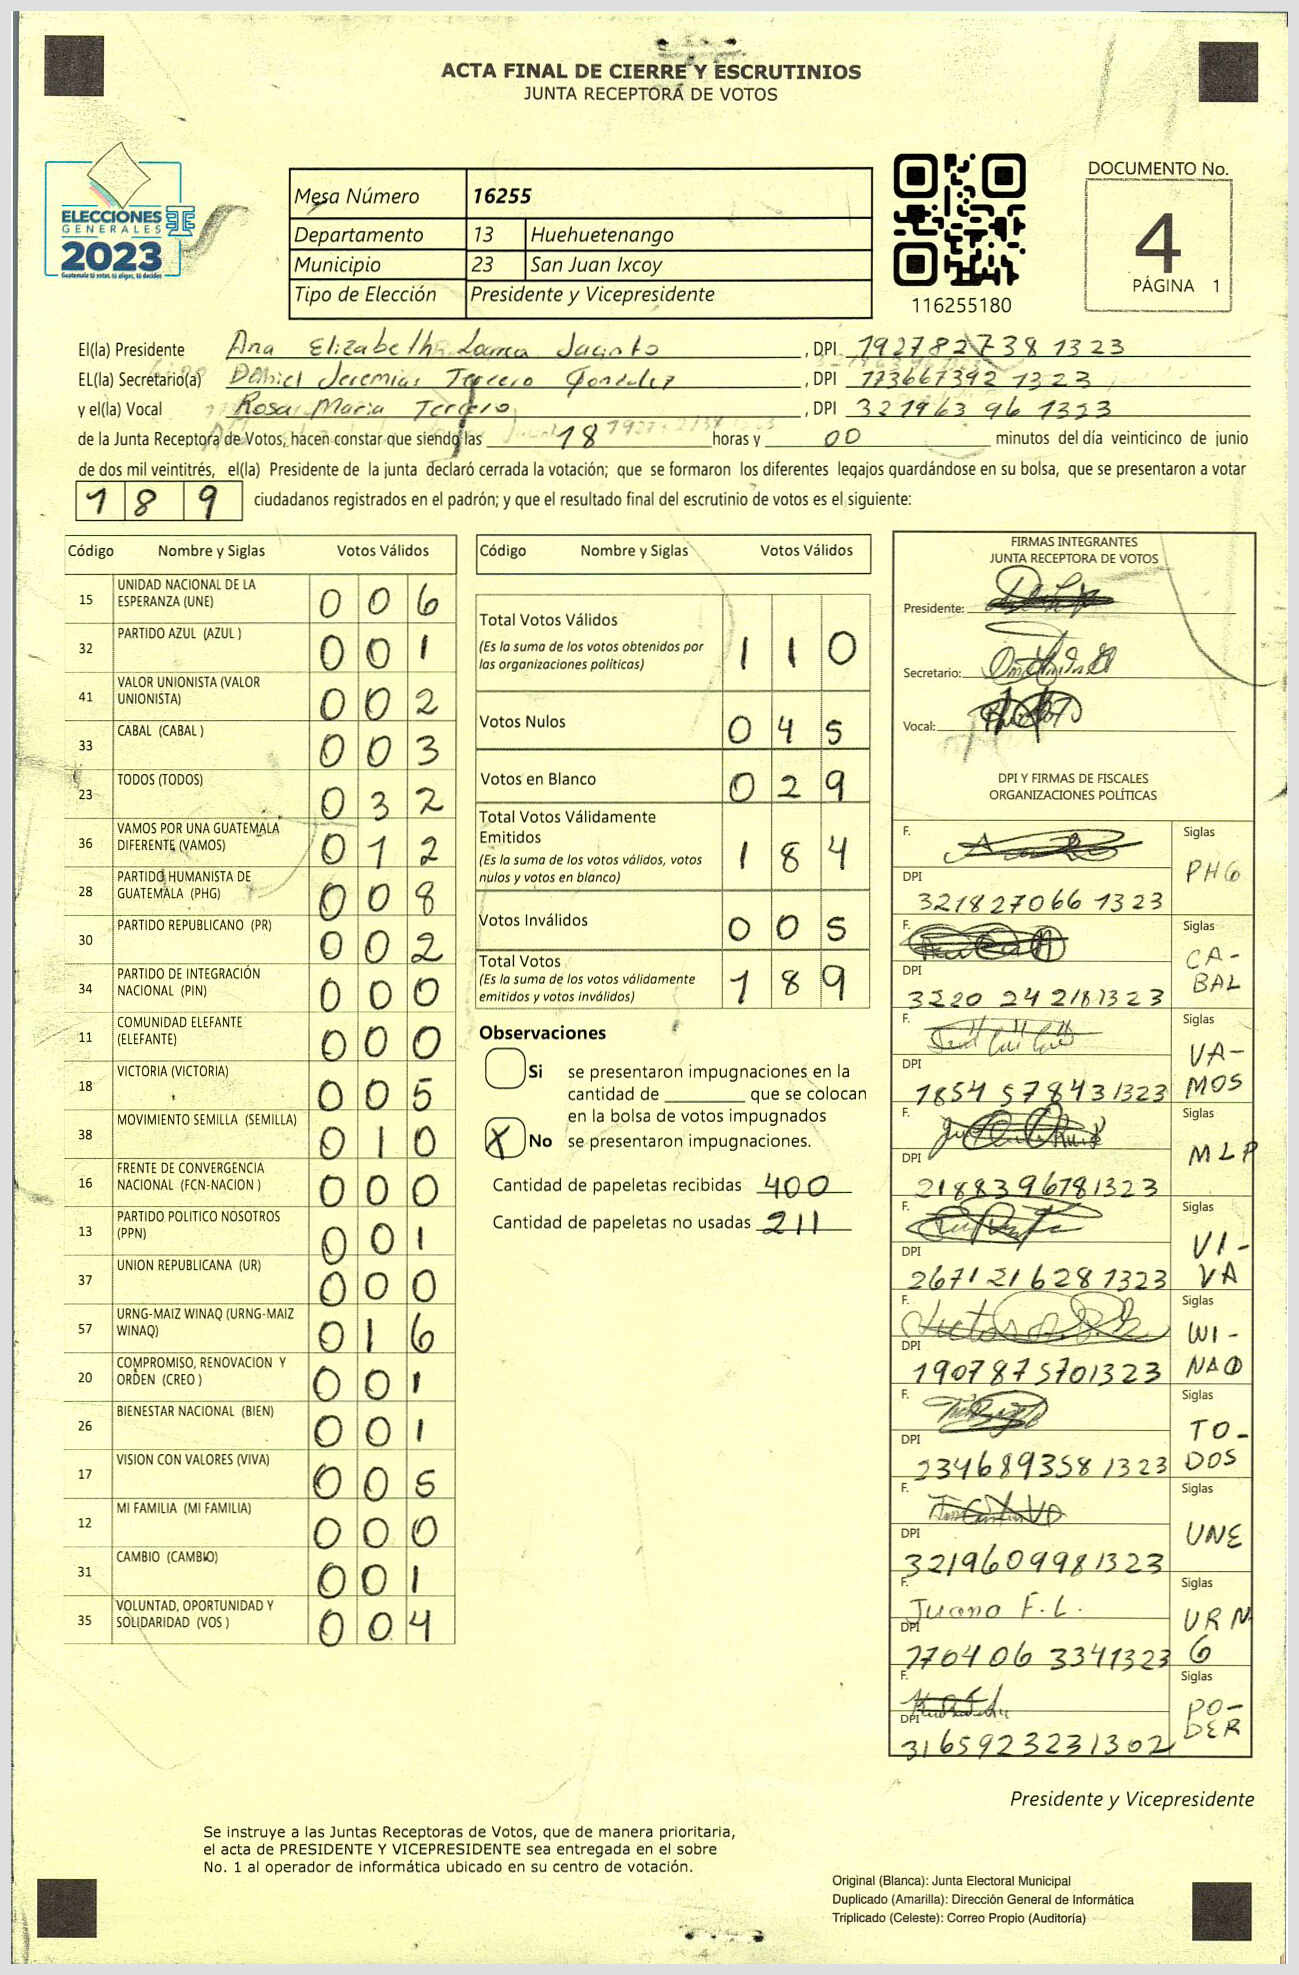 ACTA FINAL DE CIERRE Y ESCRUTINIOS
JUNTA RECEPTORA DE VOTOS
ELECCIONES
GENERALES
2023
Guatemala tú votas, tú eliges, tú decides
Mesa Número 16255
Departamento 13 Huehuetenango
Municipio 23 San Juan Ixcoy
Tipo de Elección Presidente y Vicepresidente
116255180
DOCUMENTO No.
4
PÁGINA 1
El(la) Presidente Ana Elizabeth Jacinto , DPI 1927827381323
EL(la) Secretario(a) Daniel Jeremias Tercero Gonzalez , DPI 1736673921323
y el(la) Vocal Rosa Maria Tercero , DPI 321963961323
de la Junta Receptora de Votos, hacen constar que siendo las 18 horas y 00 minutos del día veinticinco de junio
de dos mil veintitrés, el(la) Presidente de la junta declaró cerrada la votación; que se formaron los diferentes legajos guardándose en su bolsa, que se presentaron a votar
189 ciudadanos registrados en el padrón; y que el resultado final del escrutinio de votos es el siguiente:
Código Nombre y Siglas Votos Válidos
15 UNIDAD NACIONAL DE LA ESPERANZA (UNE) 006
32 PARTIDO AZUL (AZUL ) 001
41 VALOR UNIONISTA (VALOR UNIONISTA) 002
33 CABAL (CABAL ) 003
23 TODOS (TODOS) 032
36 VAMOS POR UNA GUATEMALA DIFERENTE (VAMOS) 012
28 PARTIDO HUMANISTA DE GUATEMALA (PHG) 008
30 PARTIDO REPUBLICANO (PR) 002
34 PARTIDO DE INTEGRACIÓN NACIONAL (PIN) 000
11 COMUNIDAD ELEFANTE (ELEFANTE) 000
18 VICTORIA (VICTORIA) 005
38 MOVIMIENTO SEMILLA (SEMILLA) 010
16 FRENTE DE CONVERGENCIA NACIONAL (FCN-NACION ) 000
13 PARTIDO POLITICO NOSOTROS (PPN) 001
37 UNION REPUBLICANA (UR) 000
57 URNG-MAIZ WINAQ (URNG-MAIZ WINAQ) 016
20 COMPROMISO, RENOVACION Y ORDEN (CREO ) 001
26 BIENESTAR NACIONAL (BIEN) 001
17 VISION CON VALORES (VIVA) 005
12 MI FAMILIA (MI FAMILIA) 000
31 CAMBIO (CAMBIO) 001
35 VOLUNTAD, OPORTUNIDAD Y SOLIDARIDAD (VOS ) 004
Código Nombre y Siglas Votos Válidos
Total Votos Válidos 110
(Es la suma de los votos obtenidos por
las organizaciones políticas)
Votos Nulos 045
Votos en Blanco 029
Total Votos Válidamente
Emitidos 184
(Es la suma de los votos válidos, votos
nulos y votos en blanco)
Votos Inválidos 005
Total Votos 189
(Es la suma de los votos válidamente
emitidos y votos inválidos)
Observaciones
Si se presentaron impugnaciones en la
cantidad de ________ que se colocan
en la bolsa de votos impugnados
X No se presentaron impugnaciones.
Cantidad de papeletas recibidas 400
Cantidad de papeletas no usadas 211
FIRMAS INTEGRANTES
JUNTA RECEPTORA DE VOTOS
Presidente:
Secretario:
Vocal:
DPI Y FIRMAS DE FISCALES
ORGANIZACIONES POLÍTICAS
F. Siglas PHG
DPI 3218270661323
F. Siglas CA-BAL
DPI 3220242181323
F. Siglas VA-MOS
DPI 1854578431323
F. Siglas MLP
DPI 2188396781323
F. Siglas VI-VA
DPI 2671216281323
F. Siglas WI-NAQ
DPI 1907875701323
F. Siglas TO-DOS
DPI 2346893581323
F. Siglas UNE
DPI 3219609981323
F. Juana F. L. Siglas URNG
DPI 1704063341323
F. Siglas PO-DER
DPI 3165923231302
Presidente y Vicepresidente
Se instruye a las Juntas Receptoras de Votos, que de manera prioritaria,
el acta de PRESIDENTE Y VICEPRESIDENTE sea entregada en el sobre
No. 1 al operador de informática ubicado en su centro de votación.
Original (Blanca): Junta Electoral Municipal
Duplicado (Amarilla): Dirección General de Informática
Triplicado (Celeste): Correo Propio (Auditoría)